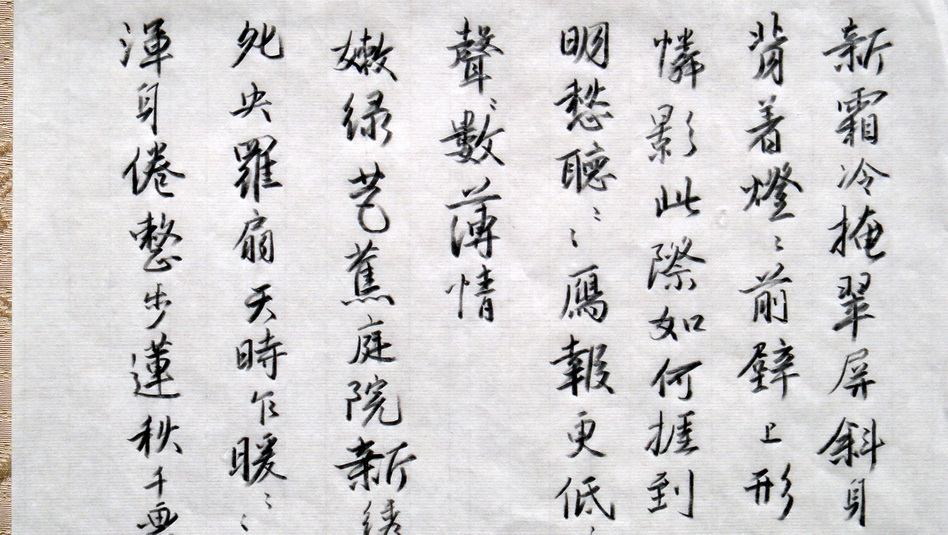 新霜冷掩翠屏斜身
背着燈〻前壁上形
憐影此際如何捱到
明愁聽〻〻鴈報更低
聲〻數薄情
嫩緑芭蕉庭院新綉
死央羅扇天時乍暖〻〻
渾身倦整步蓮秋千画